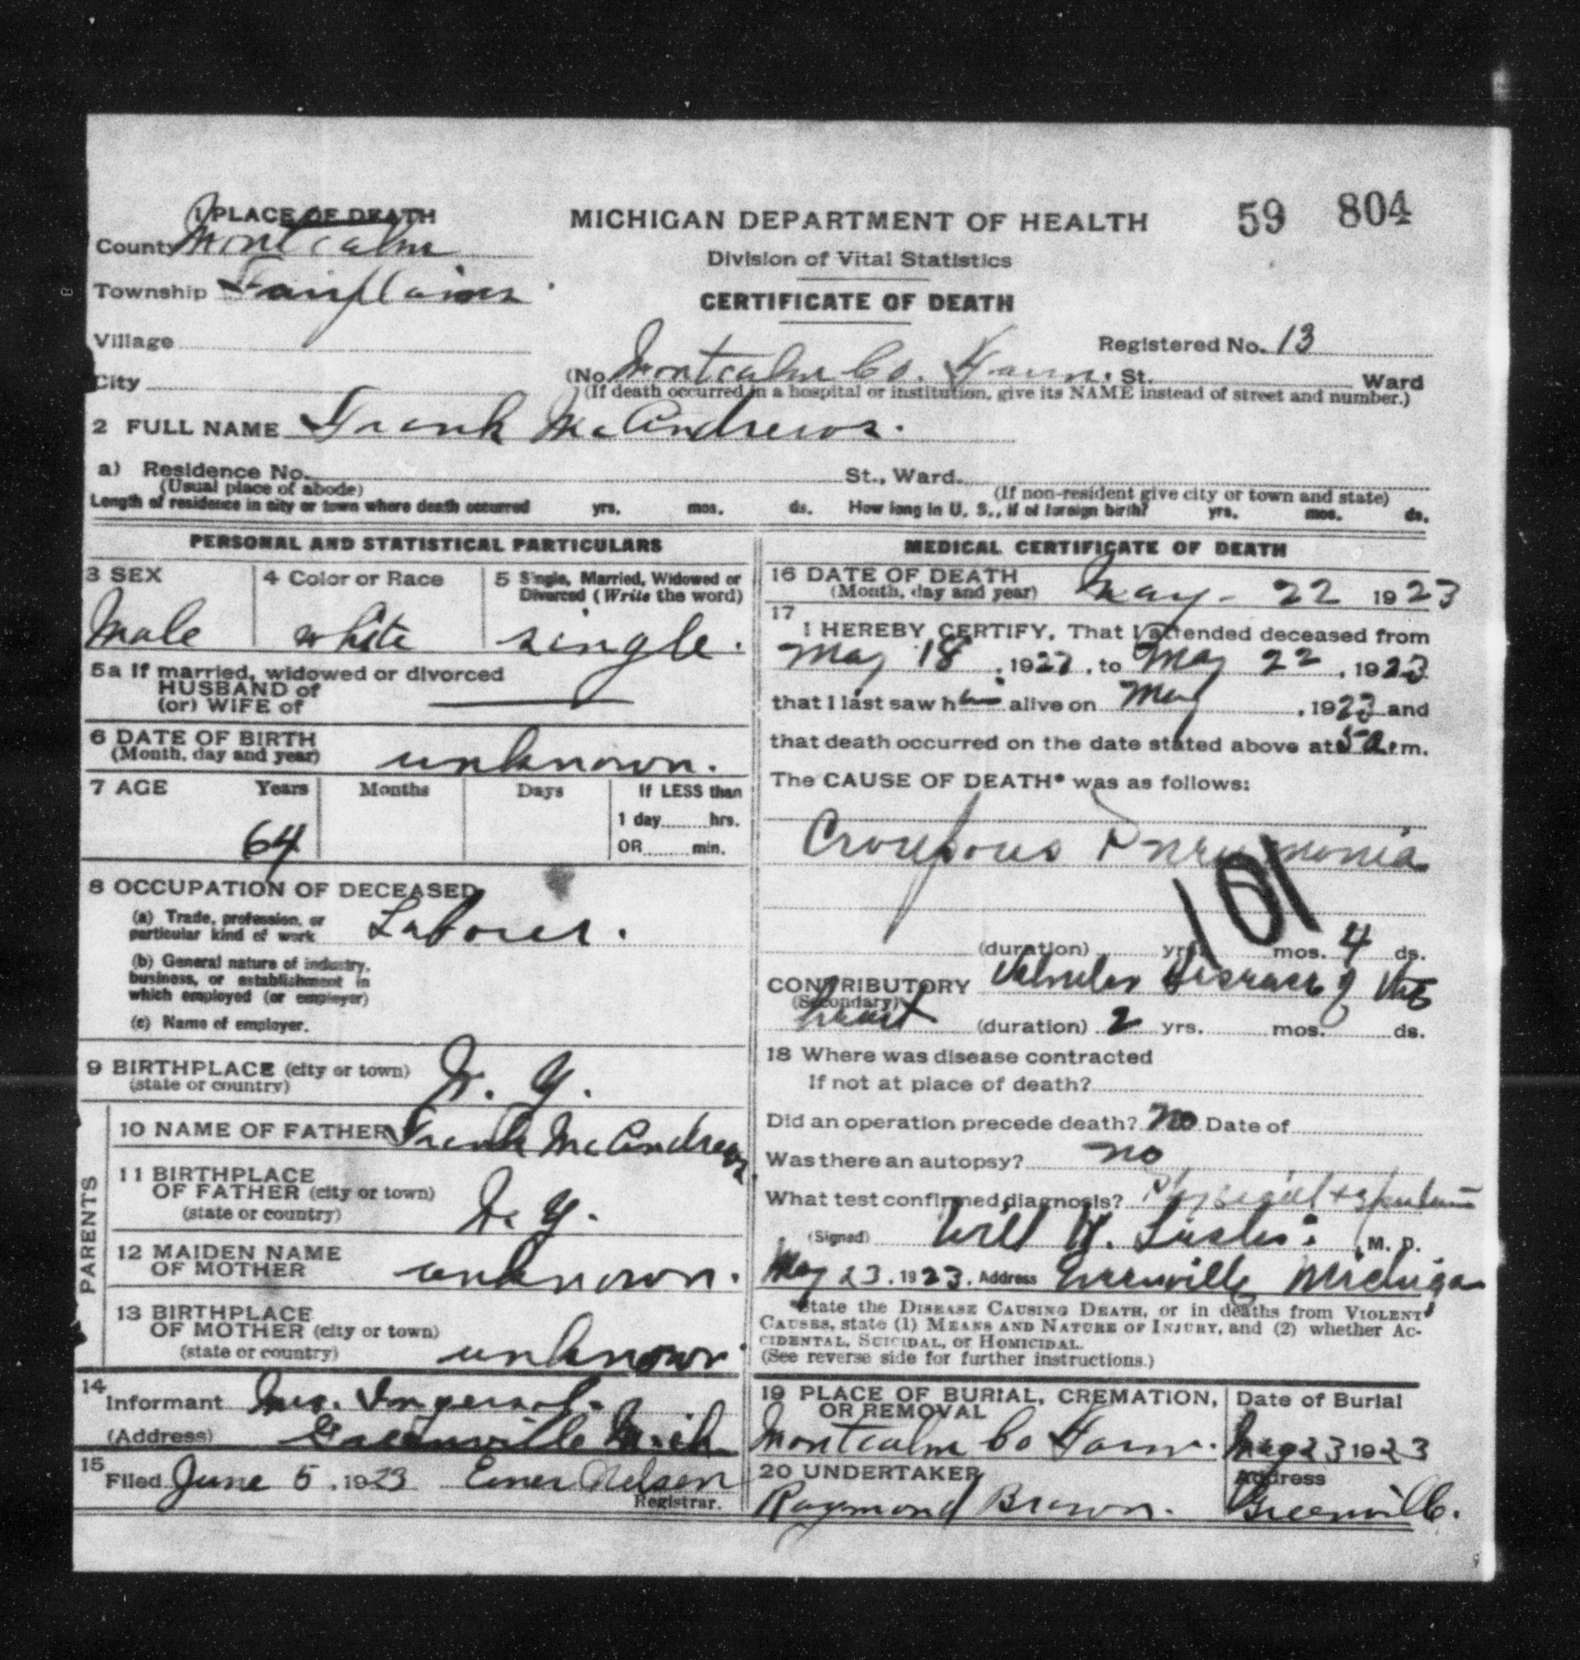 1 PLACE OF DEATH
MICHIGAN DEPARTMENT OF HEALTH
59 804
County Montcalm
Division of Vital Statistics
Township Fairplains
CERTIFICATE OF DEATH
Village
Registered No. 13
City
(No. Montcalm Co. Farm. St. Ward
(If death occurred in a hospital or institution, give its NAME instead of street and number.)
2 FULL NAME Frank McAndrews.
a) Residence No. St., Ward.
(Usual place of abode)
(If non-resident give city or town and state)
Length of residence in city or town where death occurred yrs. mos. ds. How long in U. S., if of foreign birth? yrs. mos. ds.
PERSONAL AND STATISTICAL PARTICULARS
3 SEX
Male
4 Color or Race
white
5 Single, Married, Widowed or
Divorced (Write the word)
single.
5a If married, widowed or divorced
HUSBAND of
(or) WIFE of
6 DATE OF BIRTH
(Month, day and year) unknown.
7 AGE Years Months Days If LESS than
1 day hrs.
64
OR min.
8 OCCUPATION OF DECEASED
(a) Trade, profession, or
particular kind of work Laborer.
(b) General nature of industry,
business, or establishment in
which employed (or employer)
(c) Name of employer.
9 BIRTHPLACE (city or town)
(state or country) N. Y.
PARENTS
10 NAME OF FATHER Frank McAndrews
11 BIRTHPLACE
OF FATHER (city or town)
(state or country) N. Y.
12 MAIDEN NAME
OF MOTHER unknown.
13 BIRTHPLACE
OF MOTHER (city or town)
(state or country) unknown
14
Informant Mrs. Ingersol.
(Address) Greenville Mich
15
Filed June 5, 1923 Nelsen
Registrar.
MEDICAL CERTIFICATE OF DEATH
16 DATE OF DEATH
(Month, day and year) May - 22 1923
17
I HEREBY CERTIFY, That I attended deceased from
May 18, 1923, to May 22, 1923
that I last saw him alive on May , 1923 and
that death occurred on the date stated above at 5 a. m.
The CAUSE OF DEATH* was as follows:
Croupous Pneumonia
101
(duration) yrs. mos. 4 ds.
CONTRIBUTORY Valvular Disease of the
(Secondary)
heart (duration) 2 yrs. mos. ds.
18 Where was disease contracted
If not at place of death?
Did an operation precede death? no Date of
Was there an autopsy? no
What test confirmed diagnosis? Physical + sputum
(Signed) Will H. M. D.
May 23, 1923. Address Greenville Michigan
*State the DISEASE CAUSING DEATH, or in deaths from VIOLENT
CAUSES, state (1) MEANS AND NATURE OF INJURY, and (2) whether AC-
CIDENTAL, SUICIDAL, or HOMICIDAL.
(See reverse side for further instructions.)
19 PLACE OF BURIAL, CREMATION,
OR REMOVAL
Montcalm Co Farm.
Date of Burial
May 23 1923
20 UNDERTAKER
Raymond Brown.
Address
Greenville.